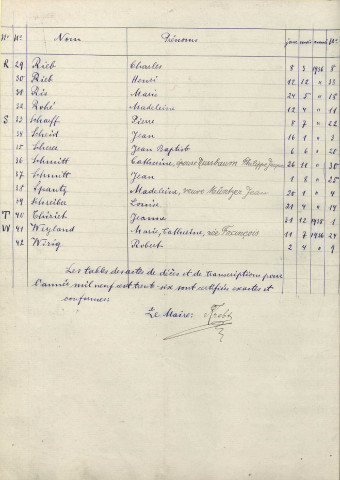 N° N° Nom Prénoms jour mois année N°
R 29 Rieb Charles 8 3 1936 5
30 Rieb Henri 12 12 " 33
31 Ris Marie 24 5 " 15
32 Robé Madeleine 12 4 " 11
S 33 Schaff Pierre 8 7 " 22
34 Scheid Jean 16 1 " 3
35 Jean Baptist 6 6 "
36 Schmitt Catherine, épouse Nussbaum Philippe Jacques 26 11 " 30
37 Schmitt Jean 1 8 " 25
38 Madeleine, veuve Jean 20 1 " 4
39 Schreiber Louise 21 4 " 14
T 40 Jeanne 21 12 1935 1
W 41 Weyland Marie, Catherine, née François 11 7 1936 24
42 Wirig Robert 2 4 " 9
Les tables des actes de décès et de transcriptions pour
l'année mil neuf cent trente-six sont certifiées exactes et
conformes.
Le Maire: